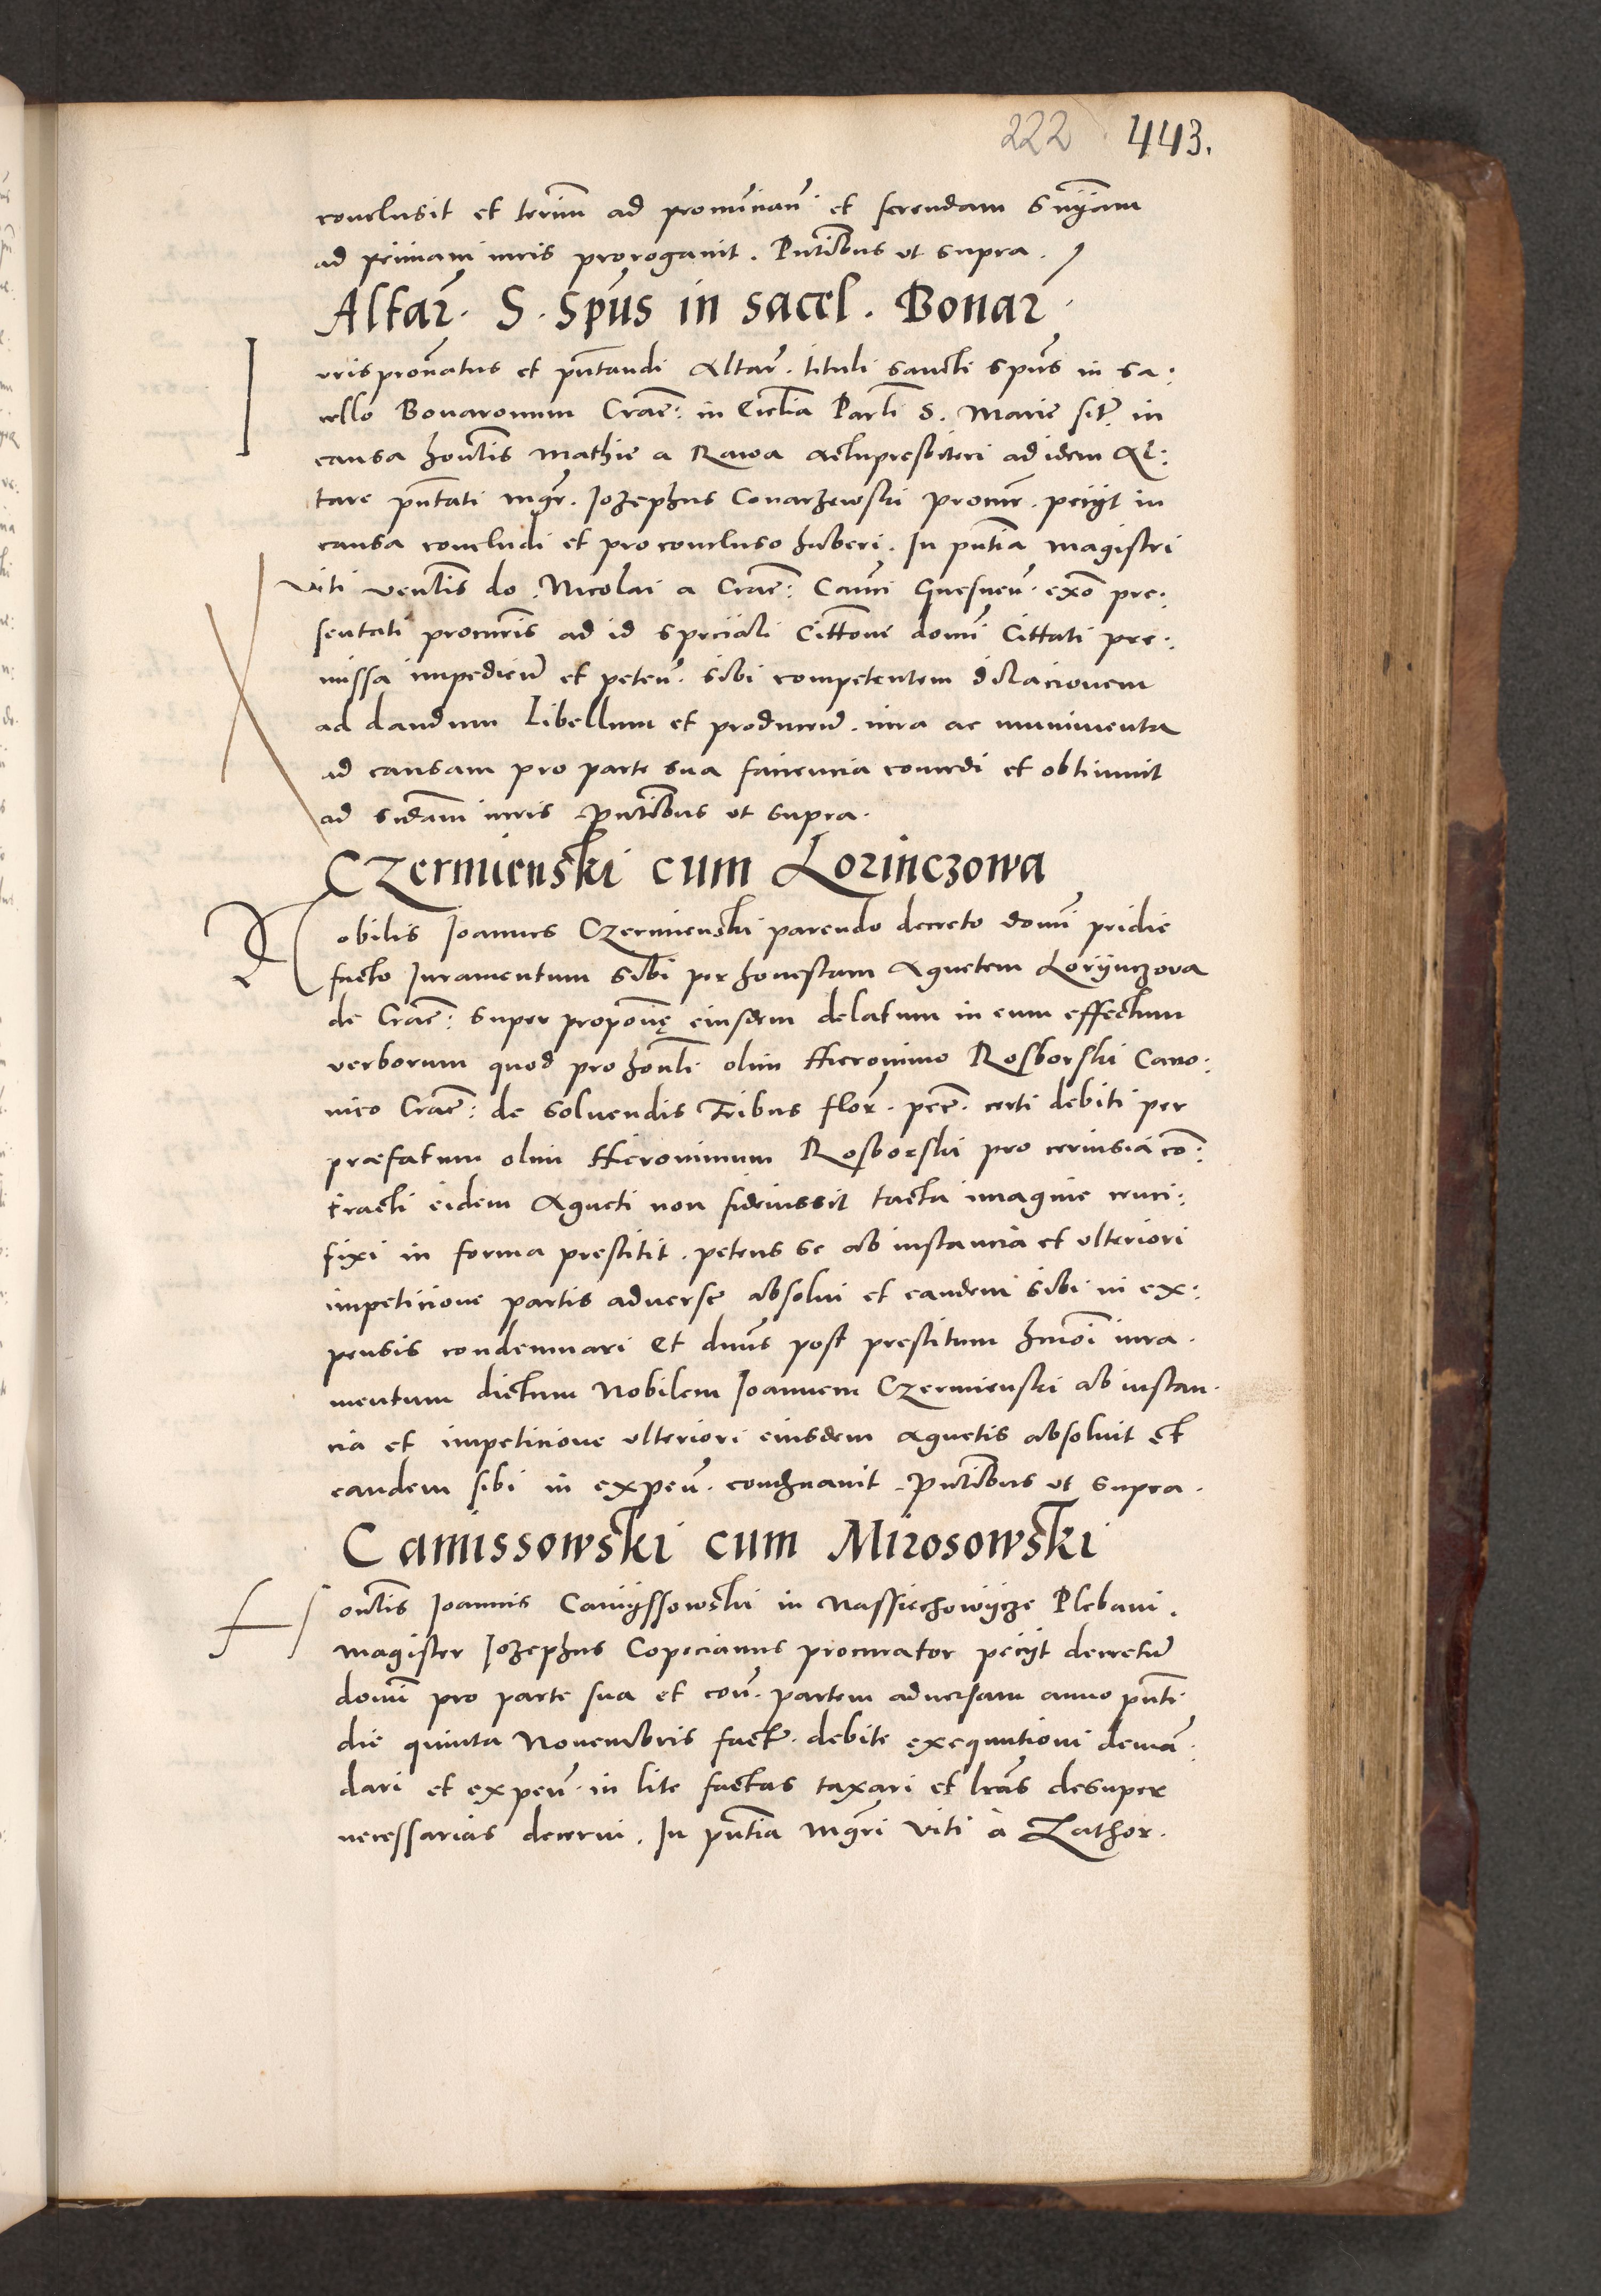 222 443.
conclusit et terim̃ ad pronun̄cian̄. et ferendam Sn̄yam
ad primam iuris prorogauit. Pn̄tibus ut supra.
Altar̃. S. Sp̃us in sacel. Bonar.
Iurispron̄atus et pn̄tandi Altar̃. tituli sancti sp̃us in sa:
cello Bonaronum Crac̃: in Eccl̃ia Par̃li S. Marie sit̃. in
causa hon̄lis Mathie a Rawa Actupresbiteri ad idem Al:
tare pn̄tati mgr̃. Iozephus Conarzewski procur̃. peciit in
causa concludi et pro concluso haberi. In pn̄tia magistri
Viti ven̄lis do. Nicolai a Crac̃: Can̄ci Gnesnen̄. ex̃o pre:
sentati procur̃is ad id speciali Citt̃one domi Cittati pre:
missa impedien̄ et peten̄. sibi competentem dilacionem
ad dandum Libellum et producen̄. iura ac munimenta
ad causam pro parte sua faciencia concedi et obtinuit
ad sc̃dam iuris Pn̄tibus ut supra.
Czermienski cum Lorinczowa
Nobilis Joannes Czermienski parendo decreto domi pridie
facto Iuramentum sibi per honestam Agnetem Loryinczova
de Crac̃: super propon̄e eiusdem delatum in eum effectum
verborum quod pro hon̄li olim Hieronimo Rosborski Cano:
nico Crac̃: de soluendis Tribus flor̃. pec̃. certi debiti per
præfatum olim Hieronimum Rosborski pro ceruisia co̅:
tracti eidem Agneti non fideiussit tacta imagine cruci:
fixi in forma prestitit. petens se ab instancia et ulteriori
impeticione partis aduerse absolui et eandem sibi in ex:
pensis condemnari Et dnus post prestitum hmo̅i iura.
mentum dictum Nobilem Joannem Czermienski ab instan.
cia et impeticione ulteriori eiusdem Agnetis absoluit et
eandem sibi in expen̄. condemnauit Pn̄tibus ut supra.
Camissowski cum Mirosowski
Hon̄lis Joannis Camyssowski in Nassiechowycze Plebani.
Magister Iozephus Copecianus procurator peciit decretum̃
domi pro parte sua et con̄. partem aduersam anno pn̄ti
die quinta Nouembris fact̃. debite exequutioni deman̄:
dari et expen̄. in lite factas taxari et lr̃as desuper
necessarias decerni. In pn̄tia mgr̃i Viti à Zathor.